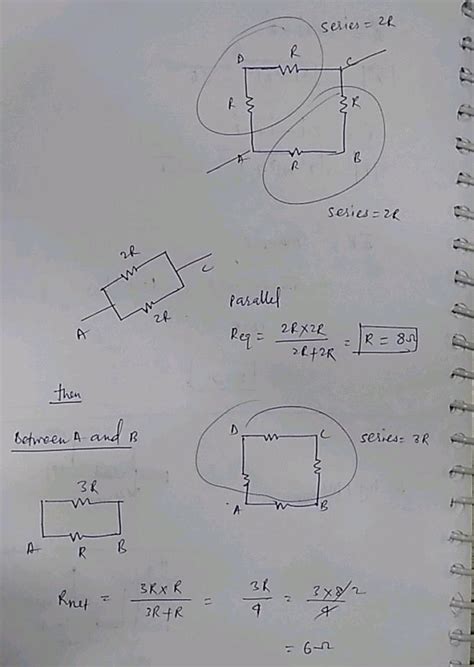 series = 2R
D R C
R R
A R B
series = 2R
2R
C
2R
A
Parallel
Req = 2R×2R / 2R+2R = R = 8Ω
then
Between A and B
D C
series = 3R
A B
3R
A R B
Rnet = 3R×R / 3R+R = 3R / 4 = 3×8 2 / 4
= 6Ω